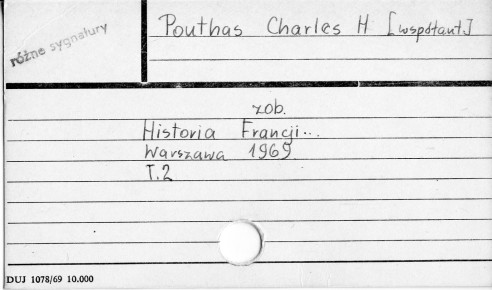 różne sygnatury
Pouthas Charles H [współaut.]
zob.
Historia Francji...
Warszawa 1969
T.2
DUJ 1078/69 10.000